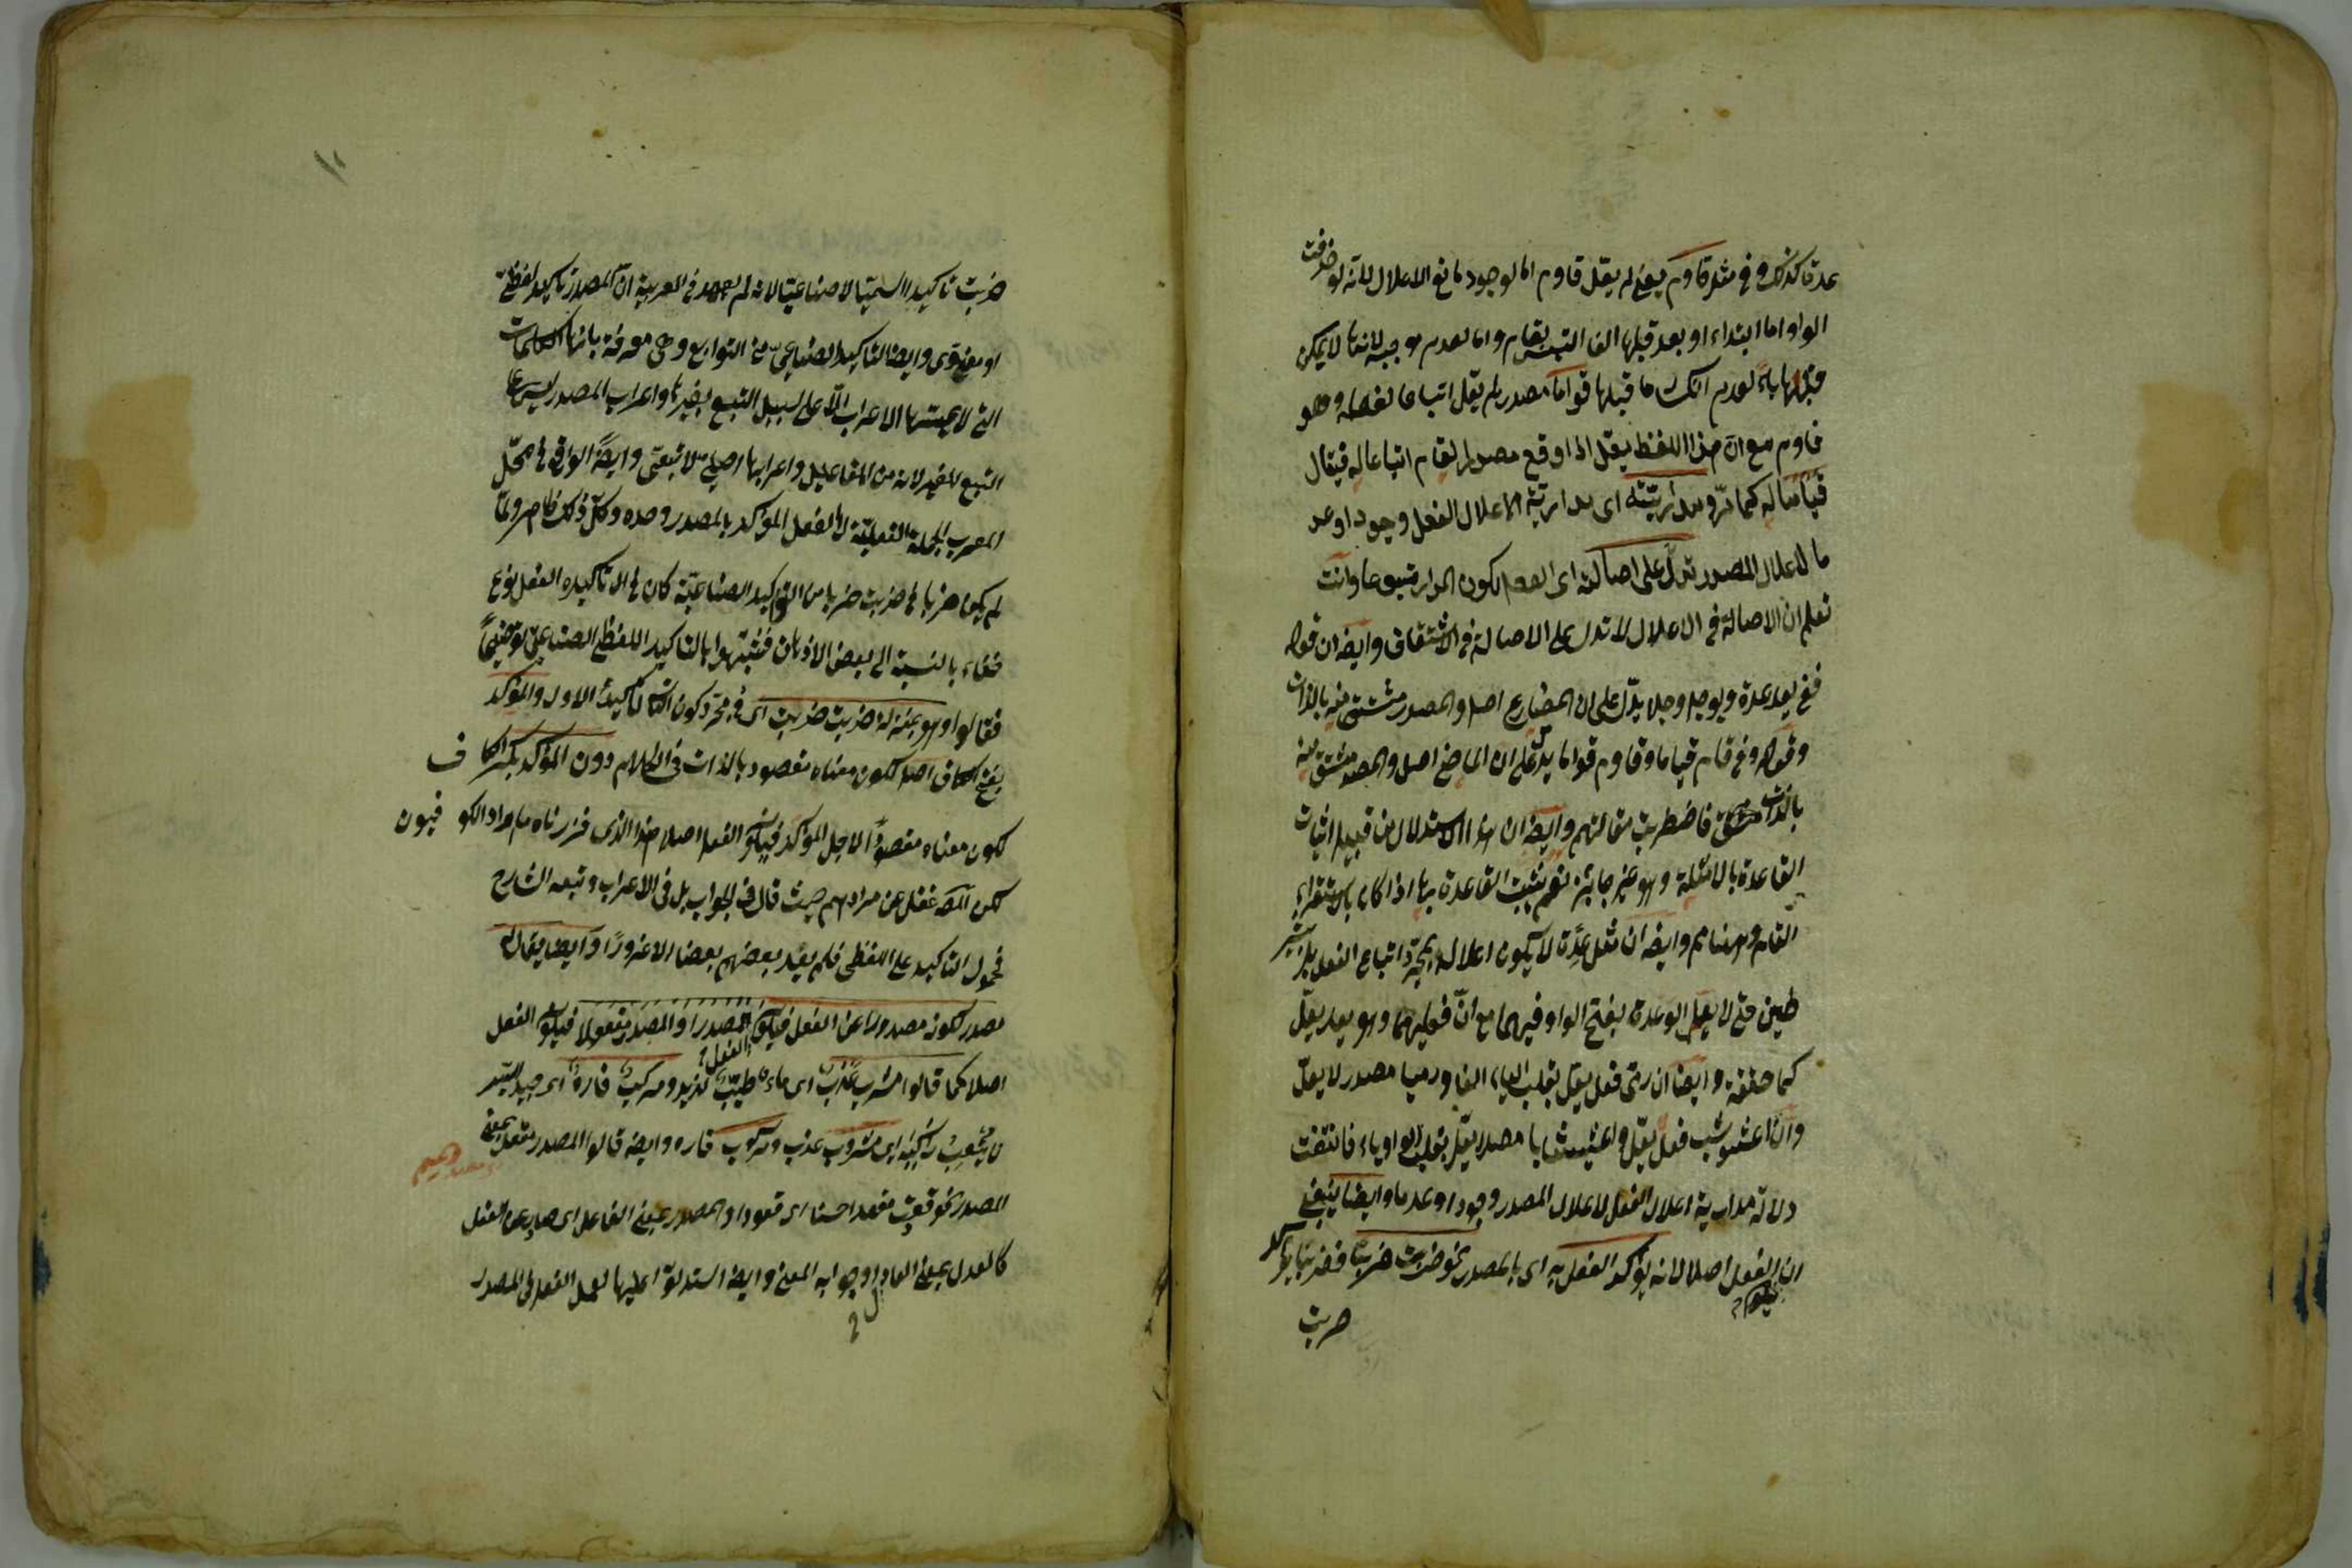 عدة كذلك وفي مثل قاوم يعني لم يقل قاوم اما لوجود مانع الاعلال لانه لو حذفت
الواو اما ابتداء او بعد قبلها الفا التبس بقام واما لعدم موجبه لانها لا يمكن
قبلها ياء لعدم انكسار ما قبلها قواما مصدر لم يقل اتباعا لفعله وهو
قاوم مع ان هذا اللفظ يعل اذا وقع مصدر لقام اتباعا له فيقال
قياما له كما مر ومدارئيته اى مدارية الاعلال الفعل وجودا وعد
ما لاعلال المصدر تدل على اصالته اى الفعل لكون المدار متبوعا وانت
تعلم ان الاصالة في الاعلال لا تدل على الاصالة في الاشتقاق وايضا ان قوله
في يعد عدة ويوجل وجلا يدل على ان المضارع اصل والمصدر مشتق منه بالذات
وقوله وفي قام قياما وقاوم قواما يدل على ان الماضي اصل والمصدر مشتق منه
بالذات فاضطربت مقالتهم وايضا ان هذا الاستدلال من قبيل اثبات
القاعدة بالامثلة وهو غير جائز نعم تثبت القاعدة بها اذا كان باستقراء
التام وههنا مم وايضا ان مثل عدة لا يكون اعلاله بمجرد اتباع الفعل بل بشر
طين حتى لا يعل الوعدة بفتح الواو فيهما مع ان فعليهما وهو يعد يعل
كما حققه وايضا ان رمى فعل يعل بقلب الياء الفا ورميا مصدر لا يعل
وان اعشوشب فعل لا يعل واعشيشابا مصدر يعل بقلب الواو ياء فانتفت
دلالة مدارية اعلال الفعل لاعلال المصدر وجودا وعدما وايضا ينبغي
ان يكون الفعل اصلا لانه يؤكد الفعل به اى بالمصدر نحو ضربت ضربا فضربا تاكيد
ضربت
١٠
ضربت تاكيدا لا صناعيا لانه لم يعهد في العربية ان المصدر تاكيد لفظي
او معنوى وايضا التاكيد الصناعي من التوابع وهى معرفة بانها الكلمات
التي لا يمسها الاعراب الا على سبيل التبع لغيرها واعراب المصدر ليس على
التبع للغير لانه من المفاعيل واعرابها اصلي لا تبعي وايضا الواقع في محل
المعرب الجملة الفعلية لا الفعل المؤكد بالمصدر وحده وكل ذلك ظاهر ولما
لم يكن ضربا في ضربت ضربا من التواكيد الصناعية كان في تاكيده الفعل نوع
خفاء بالنسبة الى بعض الاذهان فشبهوا بالتاكيد اللفظي الصناعي توضيحا
فقالوا وهو بمنزلة ضربت ضربت اى في مجرد كون الثاني تاكيد الاول والمؤكد
بفتح الكاف اصل لكون معناه مقصودا بالذات في الكلام دون المؤكد بكسر الكاف
لكون معناه مقصودا لاجل المؤكد فيكون الفعل اصلا هذا الذى قررناه مراد الكوفيون
لكن المص غفل عن مرادهم حيث قال في الجواب بل في الاعراب وتبعه الشارح
فحمل التاكيد على اللفظي فلم يفيد بعضهم بعضا الا غرورا وايضا يقال له
مصدر لكونه مصدورا عن الفعل فيكون المصدر او المصدر مفعولا فيكون الفعل
اصلا كما قالوا مشرب عذب اى ماء طيب لذيذ ومركب فاره اى جيد السير
لا يتعب راكبه اى مشروب عذب ومركوب فاره وايضا قالوا المصدر مفعل بمعنى
مصدر ميم
المصدر نحو قعدت مقعدا حسنا اى قعودا والمصدر بمعنى الفاعل اى صادر عن الفعل
كالعدل بمعنى العادل وجوابه المعنى وايضا استدلوا عليها بعمل الفعل في المصدر